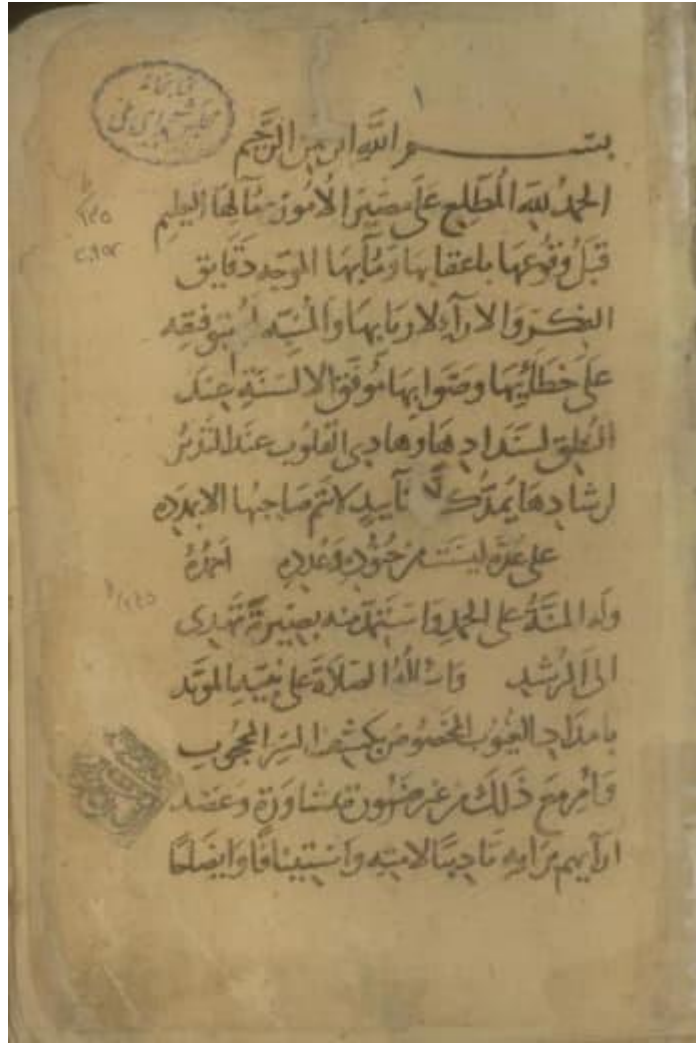 ١
بسم الله الرحمن الرحيم
الحمد لله المطلع على مصير الامور ومآلها العليم
قبل وقوعها باعقابها ومآبها الموجد دقايق
الفكر والاراء لاربابها والمنبه
على خطائها وصوابها موفق الالسنة عند
النطق لسدادها وهادي القلوب عند التدبر
لرشادها تأييد صاحبها
على عدة ليست من جنوده وعدده احمده
وله المنة على الحمد واستمد منه بصيرة تهدى
الى الرشد واسأله الصلاة على نبيه المؤيد
بامداد الغيوب المخصوص بكشف السر المحجوب
وامر مع ذلك من غير ضرورة بمشاورة
ارآيهم تاديبا لامته واستينافا وايضاحا
كتابخانه
مجلس شورای ملی